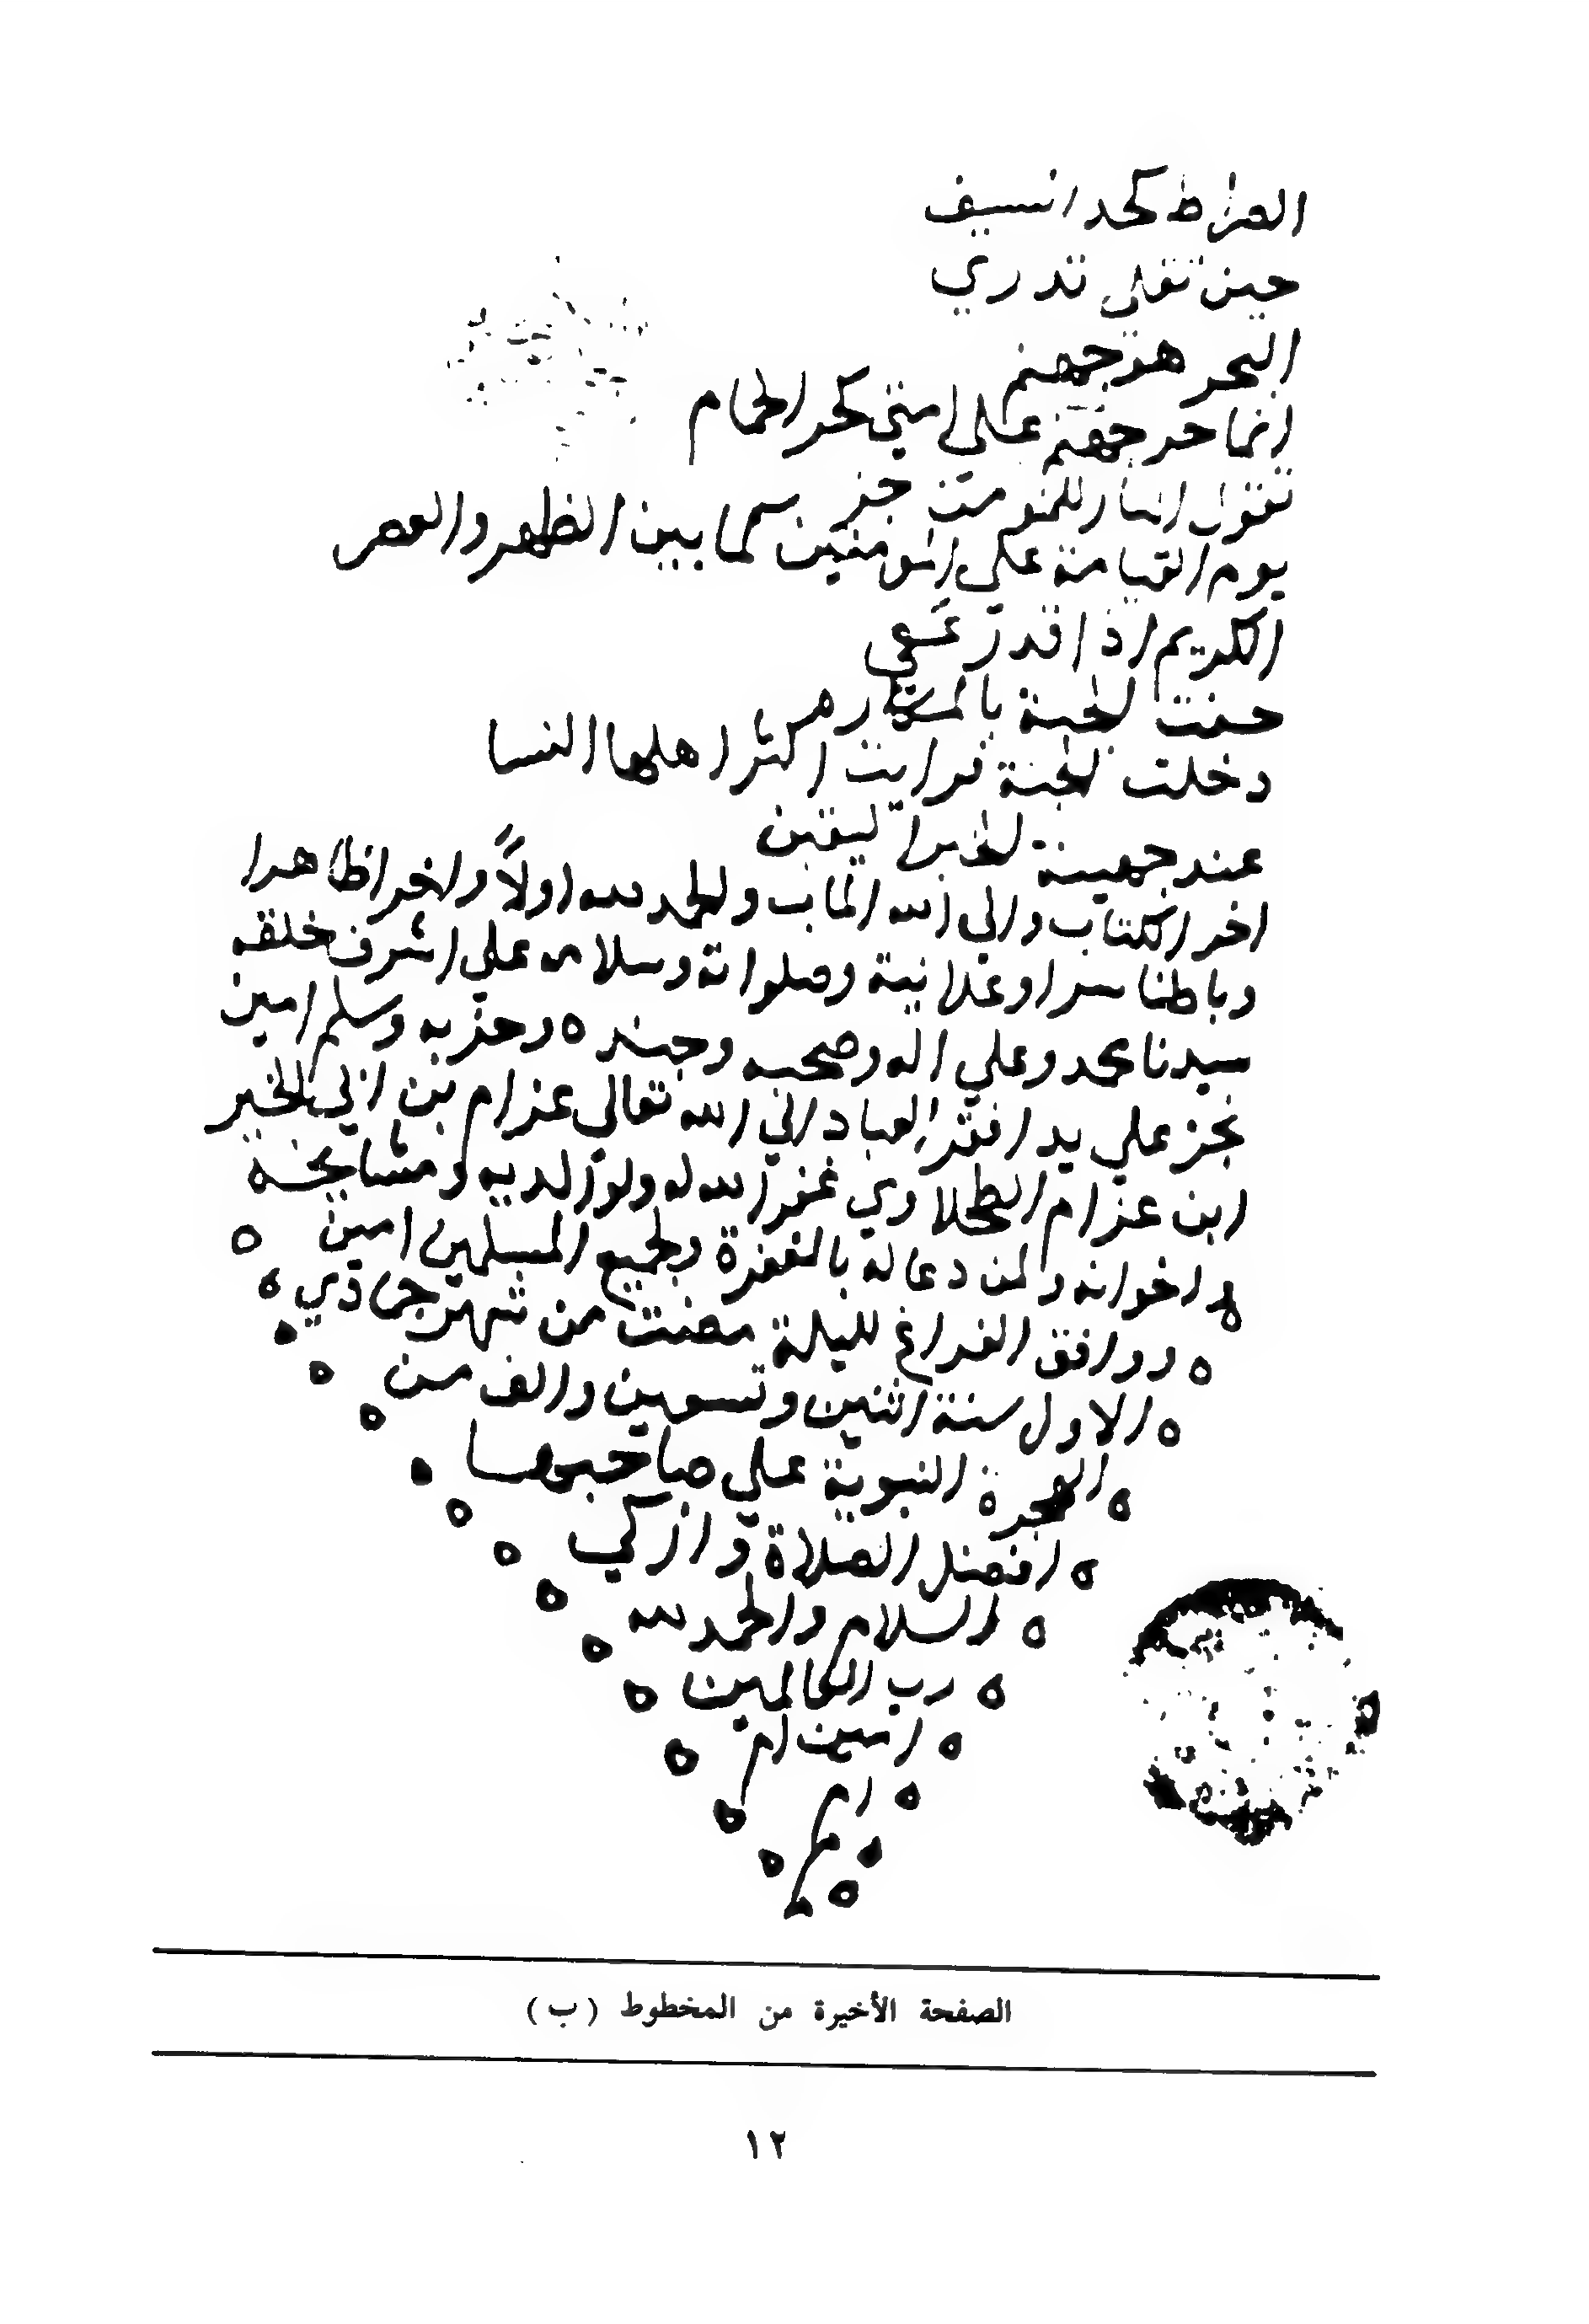 الصراط كحد السيف
حين تقلى تدري
البحر هو جهنم
انما حر جهنم علي امتي كحر الحمام
تقول النار للمومن جز
يوم القيامة علي المومنين كما بين الظهر والعصر
الكريم اذا قدر عفي
حفت الجنة بالمكاره
دخلت الجنة فرايت اكثر اهلها النسا
عند جهينة الخبر اليقين
اخر الكتاب والي الله الماب والحمد لله اولاً واخرا ظاهرا
وباطنا سرا وعلانية وصلواته وسلامه علي اشرف خلقه
سيدنا محمد وعلي اله وصحبه وجنده وحزبه وسلم امين
نجز علي يد افقر العباد الي الله تعالي عزام بن ابي الخير
ابن عزام الطحلاوي غفر الله له ولوالديه ومشايخه
واخوانه ولمن دعا له بالمغفرة ولجميع المسلمين امين
ووافق الفراغ لليلة مضت من شهر
الاول سنة اثنين وتسعين والف من
الهجرة النبوية علي صاحبها
افضل الصلاة وازكي
السلام والحمد لله
رب العالمين
امين ام
ام
م
الصفحة الأخيرة من المخطوط (ب)
١٢